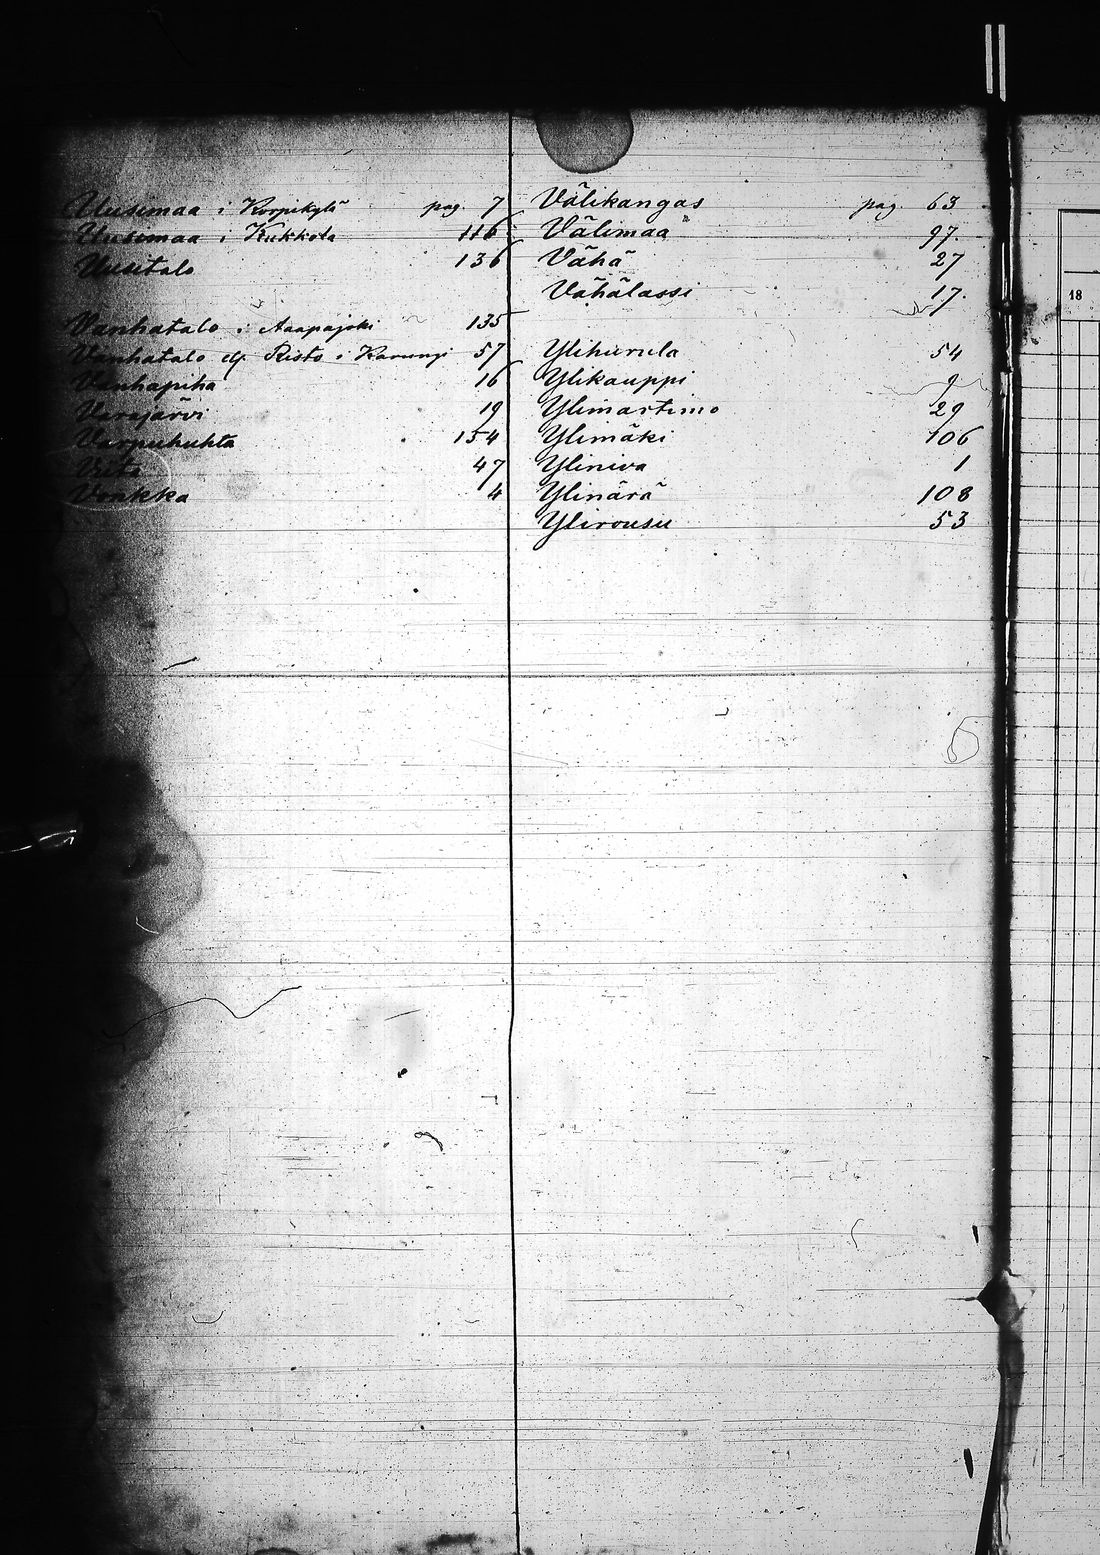 Uusimaa i Korpikylä pag. 7
Uusimaa i Kukkola 116
Uusitalo 136
Vanhatalo i Aaapajoki 135
Vanhatalo ell. Risto i Karungi 57
Vanhapiha 16
Varajärvi 19
Varpuhuhta 154
47
Vonkka 4
Välikangas pag. 63
Välimaa 97.
Vähä 27
Vähälassi 17.
Ylihurula 54
Ylikauppi 9
Ylimartimo 29
Ylimäki 106
Yliniva 1
Ylinärä 108
Ylirousu 53
18